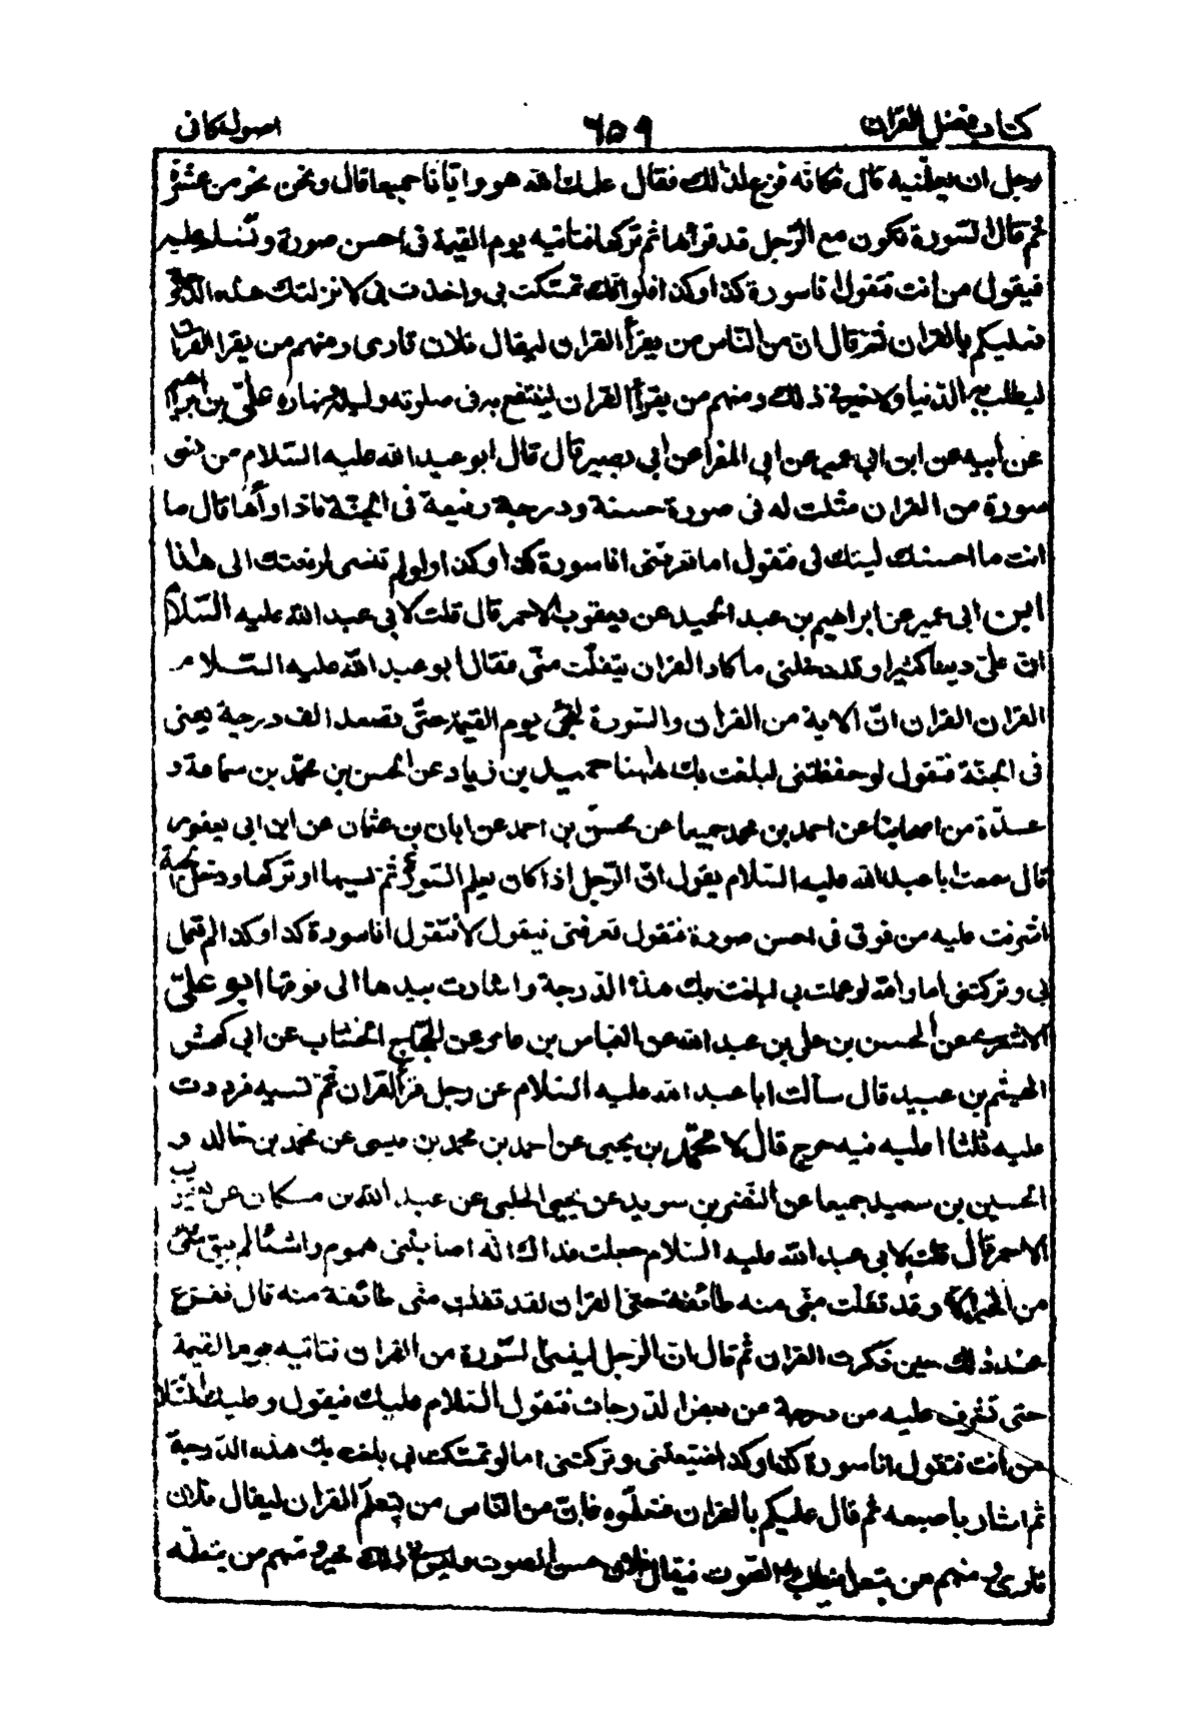 كتاب فضل القران ٦٥٩ اصول كافى
رجل ان يعلّمنيه قال فكانّه فزع لذلك فقال علمك الله هو وايّانا جميعا قال ونحن نحو من عشرة
ثم قال السّورة تكون مع الرّجل قد قرأها ثم تركها فتاتيه يوم القيمة فى احسن صورة وتسلم عليه
فيقول من انت فتقول انا سورة كذا وكذا فلو انّك تمسّكت بى واخذت بى لانزلتك هذه الدّرجة
فعليكم بالقران ثم قال انّ من النّاس من يقرأ القران ليقال فلان قارى ومنهم من يقرا القران
ليطلب به الدّنيا ولا خير فى ذلك ومنهم من يقرأ القران لينتفع به فى صلوته وليله ونهاره علىّ بن ابراهيم
عن أبيه عن ابن ابي عمير عن ابى المغرا عن ابى بصير قال قال ابو عبد الله عليه السّلام من نسى
سورة من القران مثّلت له فى صورة حسنة ودرجة رفيعة فى الجنّة فاذا رأها قال ما
انت ما احسنك ليتك لى فتقول اما تعرفنى انا سورة كذا وكذا ولو لم تنسى لرفعتك الى هذا
ابن ابى عمير عن ابراهيم بن عبد الحميد عن يعقوب الاحمر قال قلت لابى عبد الله عليه السّلام
انّ علىّ دينا كثيرا وقد دخلنى ما كاد القران يتفلّت منّى فقال ابو عبد الله عليه السّلام
القران القران انّ الاية من القران والسّورة لتجئ يوم القيمة حتّى تصعد الف درجة يعنى
فى الجنّة فتقول لو حفظتنى لبلغت بك هاهنا حميد بن زياد عن الحسن بن محمّد بن سماعة و
عدّة من اصحابنا عن احمد بن محمد جميعا عن محسن بن احمد عن ابان بن عثمان عن ابن ابى يعفور
قال سمعت ابا عبد الله عليه السّلام يقول انّ الرّجل اذا كان يعلم السّورة ثم نسيها او تركها ودخل الجنّة
اشرفت عليه من فوق فى احسن صورة فتقول تعرفنى فيقول لا فتقول انا سورة كذا وكذا لم تعمل
بى وتركتنى اما والله لو عملت بى لبلغت بك هذه الدّرجة واشارت بيدها الى فوقها ابو علىّ
الاشعرى عن الحسن بن على بن عبد الله عن العبّاس بن عامر عن الحجّاج الخشّاب عن ابى كهمش
الهيثم بن عبيد قال سألت ابا عبد الله عليه السّلام عن رجل قرأ القران ثمّ نسيه فرددت
عليه ثلثا اعليه فيه حرج قال لا محمّد بن يحيى عن احمد بن محمد بن عيسى عن محمد بن خالد و
الحسين بن سعيد جميعا عن النّضر بن سويد عن يحيى الحلبى عن عبد الله بن مسكان عن يعقوب
الاحمر قال قلت لابى عبد الله عليه السّلام جعلت فداك انّه اصابتنى هموم واشيا لم يبق شئ
من الخير الّا وقد تفلّت منّى منه طائفة حتى القران لقد تفلّت منّى طائفة منه قال ففزع
عند ذلك حين ذكرت القران ثمّ قال ان الرّجل لينسى السّورة من القران فتاتيه يوم القيمة
حتى تشرف عليه من درجة من بعض الدّرجات فتقول السّلام عليك فيقول وعليك السّلام
من انت فتقول انا سورة كذا وكذا ضيّعتنى وتركتنى اما لو تمسّكت بى بلغت بك هذه الدّرجة
ثم اشار باصبعه ثم قال عليكم بالقران فتعلّموه فانّ من النّاس من يتعلّم القران ليقال فلان
قارى ومنهم من يتعلم فيطلب به الصّوت فيقال فلان حسن الصوت وليس فى ذلك خير ومنهم من يتعلّمه